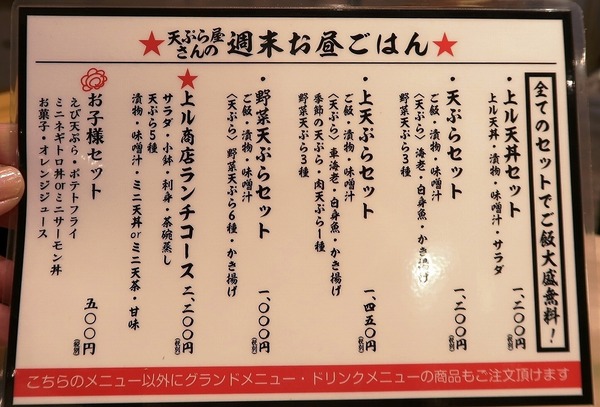 ★天ぷら屋さんの週末お昼ごはん★
全てのセットでご飯大盛無料！
・上ル天丼セット 一、二〇〇円(税別)
上ル天丼・漬物・味噌汁・サラダ
・天ぷらセット 一、二〇〇円(税別)
ご飯・漬物・味噌汁
〈天ぷら〉海老・白身魚・かき揚げ
野菜天ぷら3種
・上天ぷらセット 一、四五〇円(税別)
ご飯・漬物・味噌汁
〈天ぷら〉車海老・白身魚・かき揚げ
季節の天ぷら・肉天ぷら1種
野菜天ぷら3種
・野菜天ぷらセット 一、〇〇〇円(税別)
ご飯・漬物・味噌汁
〈天ぷら〉野菜天ぷら6種・かき揚げ
★上ル商店ランチコース 二、二〇〇円(税別)
サラダ・小鉢・刺身・茶碗蒸し
天ぷら5種
漬物・味噌汁・ミニ天丼orミニ天茶・甘味
お子様セット 五〇〇円(税別)
えび天ぷら、ポテトフライ
ミニネギトロ丼orミニサーモン丼
お菓子・オレンジジュース
こちらのメニュー以外にグランドメニュー・ドリンクメニューの商品もご注文頂けます